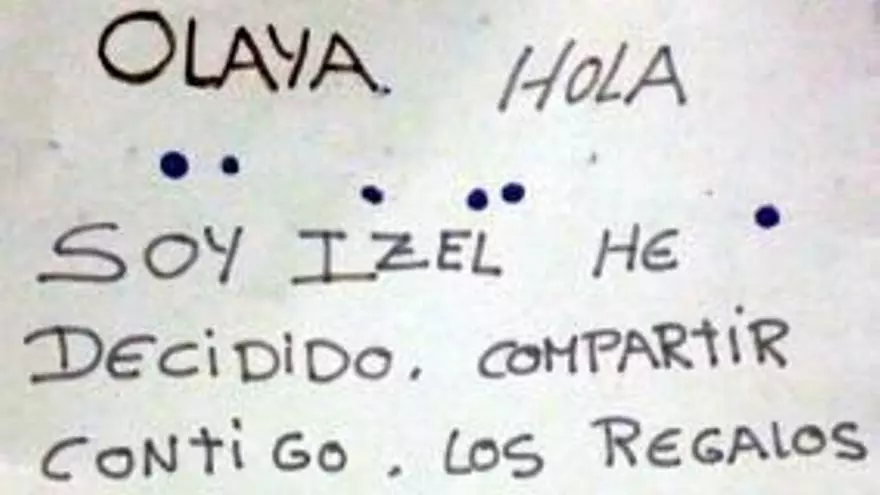 OLAYA. HOLA
SOY IZEL HE
DECIDIDO. COMPARTIR
CONTIGO. LOS REGALOS